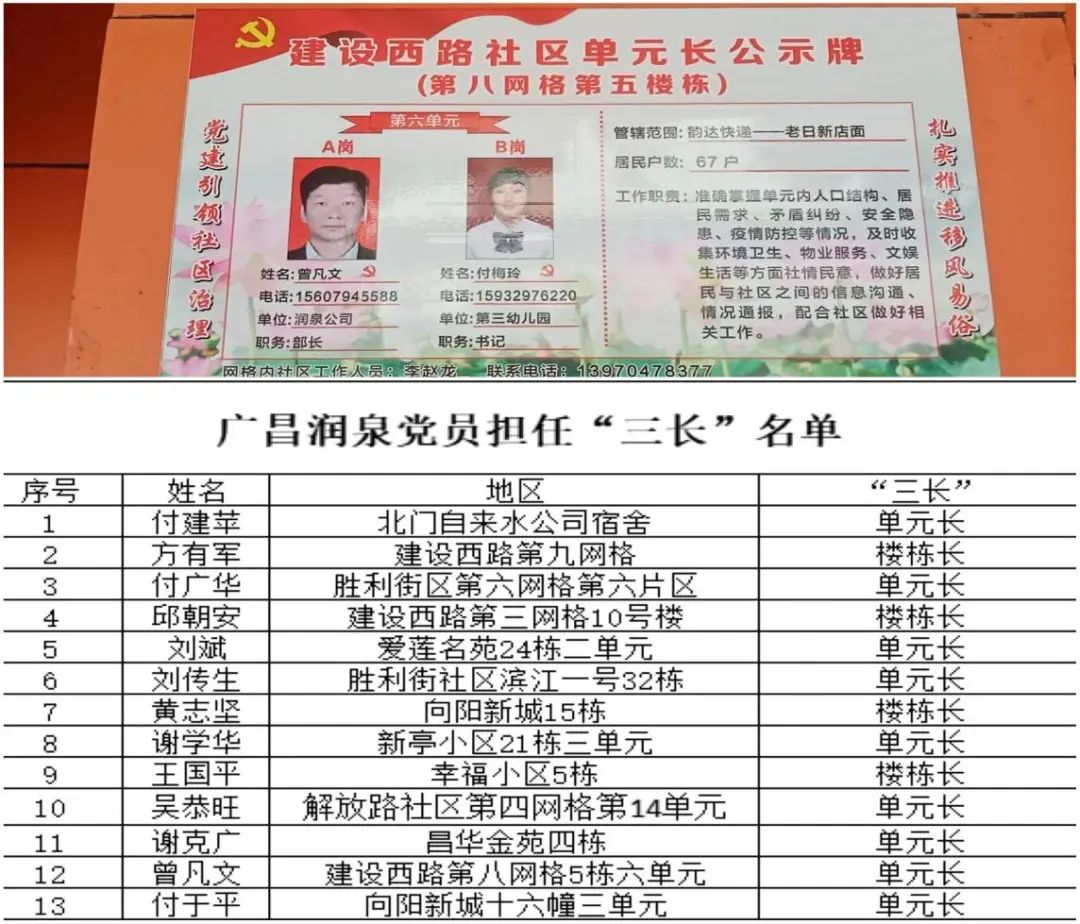 建设西路社区单元长公示牌
(第八网格第五楼栋)
党建引领社区治理
第六单元
A岗
B岗
姓名:曾凡文
电话:15607945588
单位:润泉公司
职务:部长
姓名:付梅玲
电话:15932976220
单位:第三幼儿园
职务:书记
管辖范围:韵达快递——老日新店面
居民户数: 67 户
工作职责:准确掌握单元内人口结构、居
民需求、矛盾纠纷、安全隐
患、疫情防控等情况，及时收
集环境卫生、物业服务、文娱
生活等方面社情民意，做好居
民与社区之间的信息沟通、
情况通报，配合社区做好相
关工作。
扎实推进移风易俗
网格内社区工作人员：李赵龙 联系电话：13970478377
广昌润泉党员担任“三长”名单
序号 姓名 地区 “三长”
1 付建苹 北门自来水公司宿舍 单元长
2 方有军 建设西路第九网格 楼栋长
3 付广华 胜利街区第六网格第六片区 单元长
4 邱朝安 建设西路第三网格10号楼 楼栋长
5 刘斌 爱莲名苑24栋二单元 单元长
6 刘传生 胜利街社区滨江一号32栋 单元长
7 黄志坚 向阳新城15栋 楼栋长
8 谢学华 新亭小区21栋三单元 单元长
9 王国平 幸福小区5栋 楼栋长
10 吴恭旺 解放路社区第四网格第14单元 单元长
11 谢克广 昌华金苑四栋 单元长
12 曾凡文 建设西路第八网格5栋六单元 单元长
13 付于平 向阳新城十六幢三单元 单元长